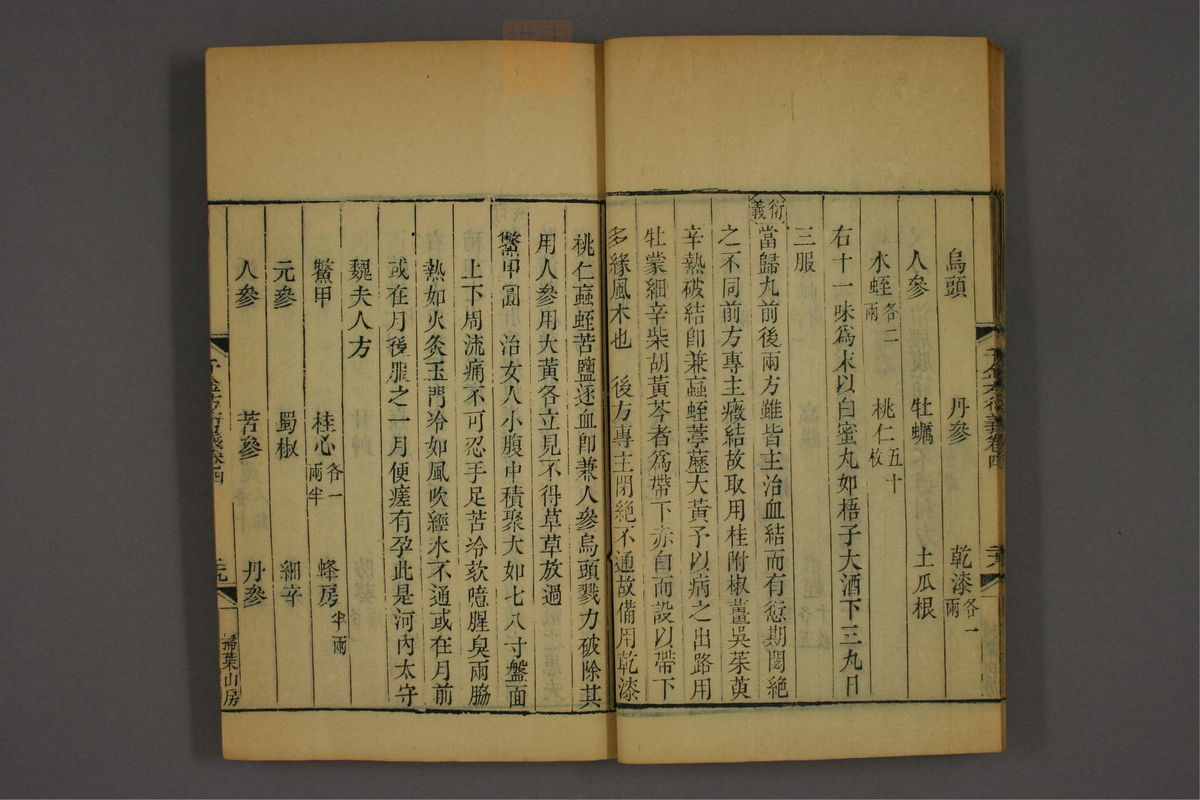 烏頭 丹參 乾漆各一兩
人參 牡蠣 土瓜根
水蛭各二兩 桃仁五十枚
右十一味爲末以白蜜丸如梧子大酒下三丸日
三服
衍義
當歸九前後兩方雖皆主治血結而有愆期閟絶
之不同前方專主癥結故取用桂附椒薑吳茱萸
辛熱破結卽兼蝱蛭葶藶大黃予以病之出路用
牡蒙細辛柴胡黃芩者爲帶下赤白而設以帶下
多緣風木也 後方專主閉絶不通故備用乾漆
桃仁蝱蛭苦鹽逐血卽兼人參烏頭戮力破除其
用人參用大黃各立見不得草草放過
鱉甲圓 治女人小腹中積聚大如七八寸盤面
上下周流痛不可忍手足苦冷欬噫腥臭兩脇
熱如火灸玉門冷如風吹經水不通或在月前
或在月後服之一月便瘥有孕此是河內太守
魏夫人方
鱉甲 桂心各一兩半 蜂房半兩
元參 蜀椒 細辛
人參 苦參 丹參
掃葉山房